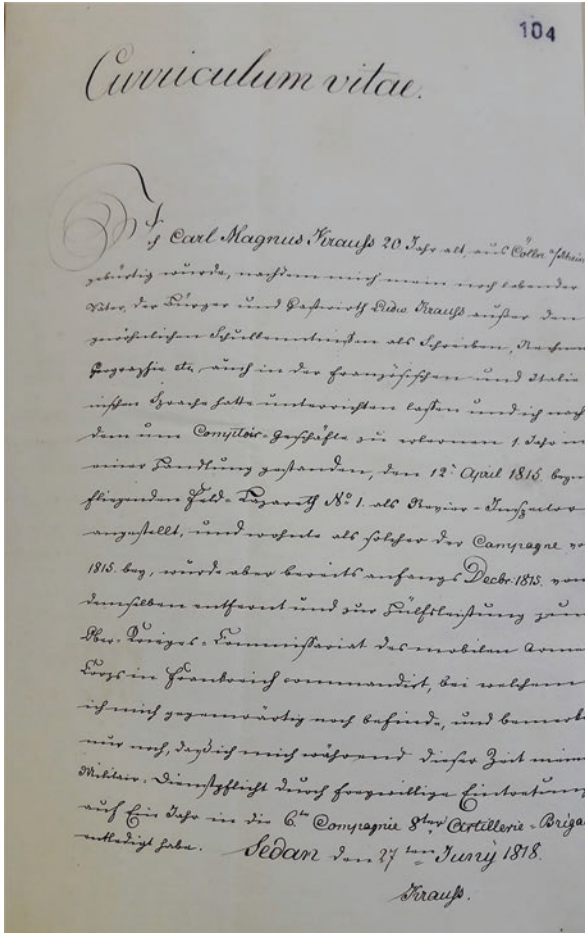 104
Curriculum vitae.
Ich Carl Magnus Krauß 20 Jahr alt, aus Cölln a/Rhein
gebürtig wurde, nachdem mich mein noch lebender
Vater, der Bürger und Gastwirth Ludw. Krauß außer den
gewöhnlichen Schulkenntnißen als Schreiben, Rechnen
Geographie etc, auch in der Französischen und Italie
nischen Sprache hatte unterrichten lassen und ich nach
dem um Comptoir-Geschäfte zu erlernen 1 Jahr in
einer Handlung gestanden, den 12t April 1815. beym
fliegenden Feld-Lazareth No 1. als Revier-Inspector
angestellt, und wohnte als solcher der Campagne vo
1815. bey, wurde aber bereits anfangs Decbr. 1815. von
demselben entfernt und zur Hülfsleistung zum
Ober-Krieges-Commissariat des mobilen Armee
Corps in Frankreich commandirt, bei welchem
ich mich gegenwärtig noch befinde, und bemerke
nur noch, daß ich mich während dieser Zeit meine
Militair-Dienstpflicht durch freywillige Eintretung
auf Ein Jahr in die 6te Compagnie 8ter Artillerie-Briga
entledigt habe. Sedan den 27ten Juny 1818.
Krauß.